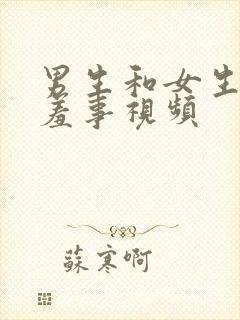 男生和女生
羞事視頻
蘇寒啊